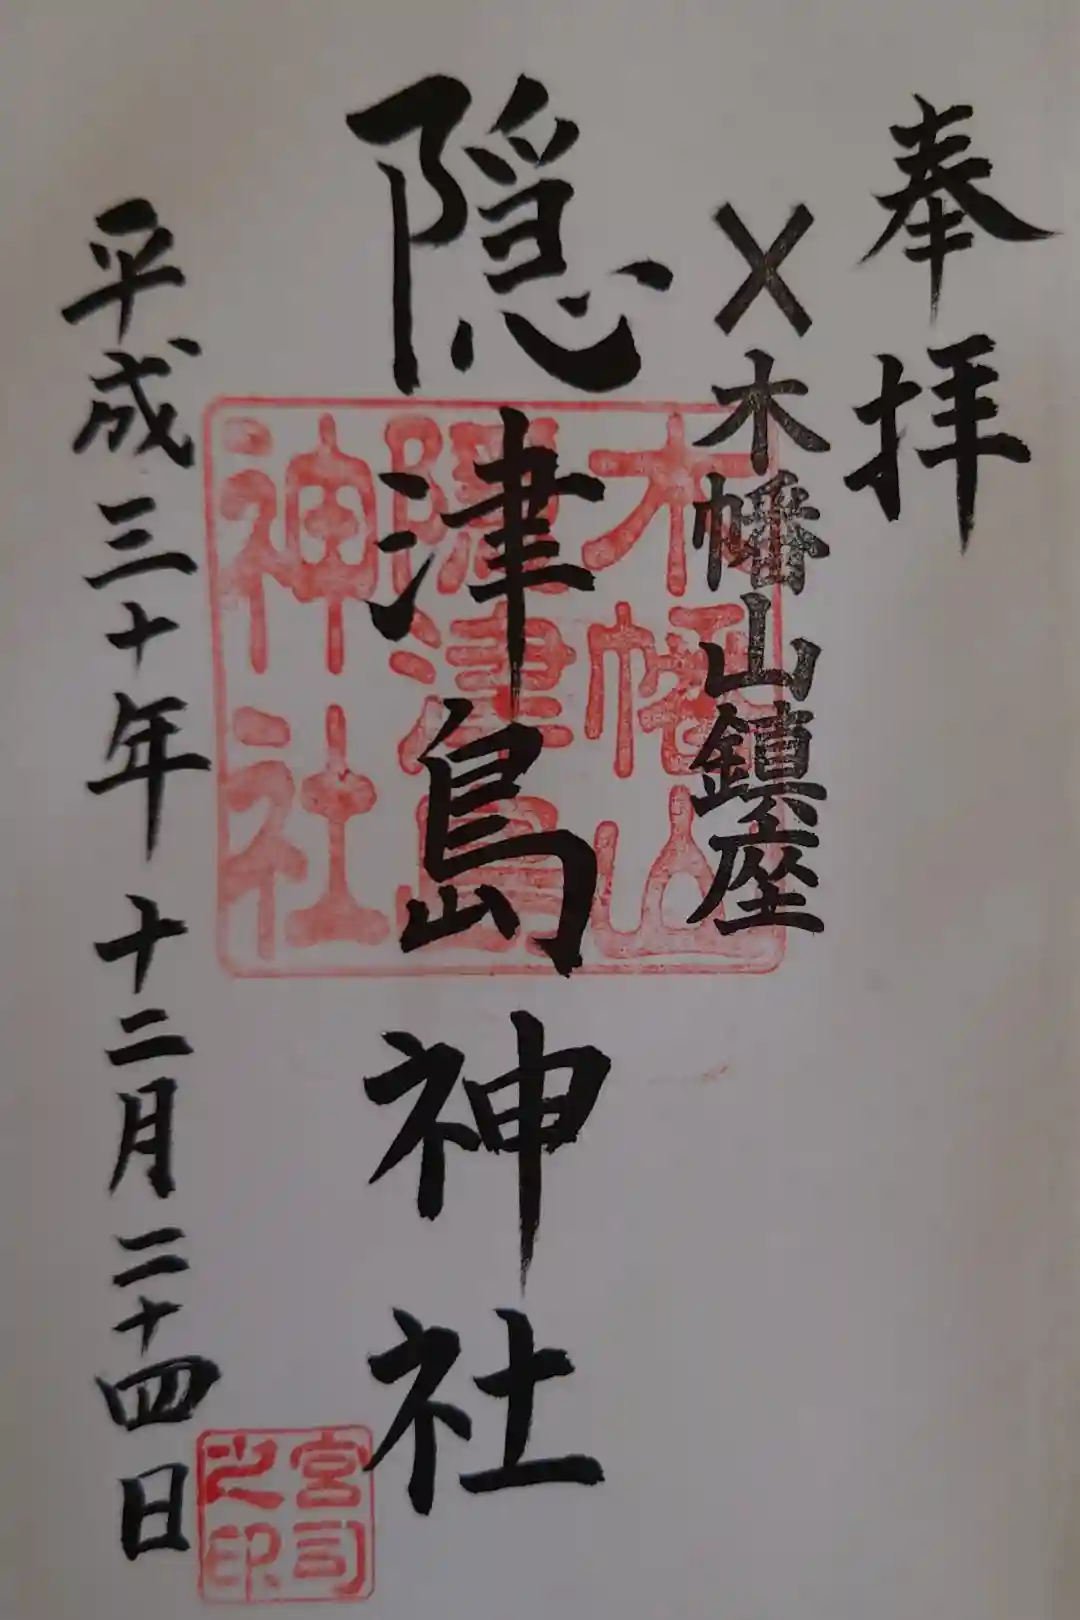 奉拝
木幡山鎮座
隠津島神社
平成三十年十二月二十四日
木幡山
隠津島
神社
宮司
之印